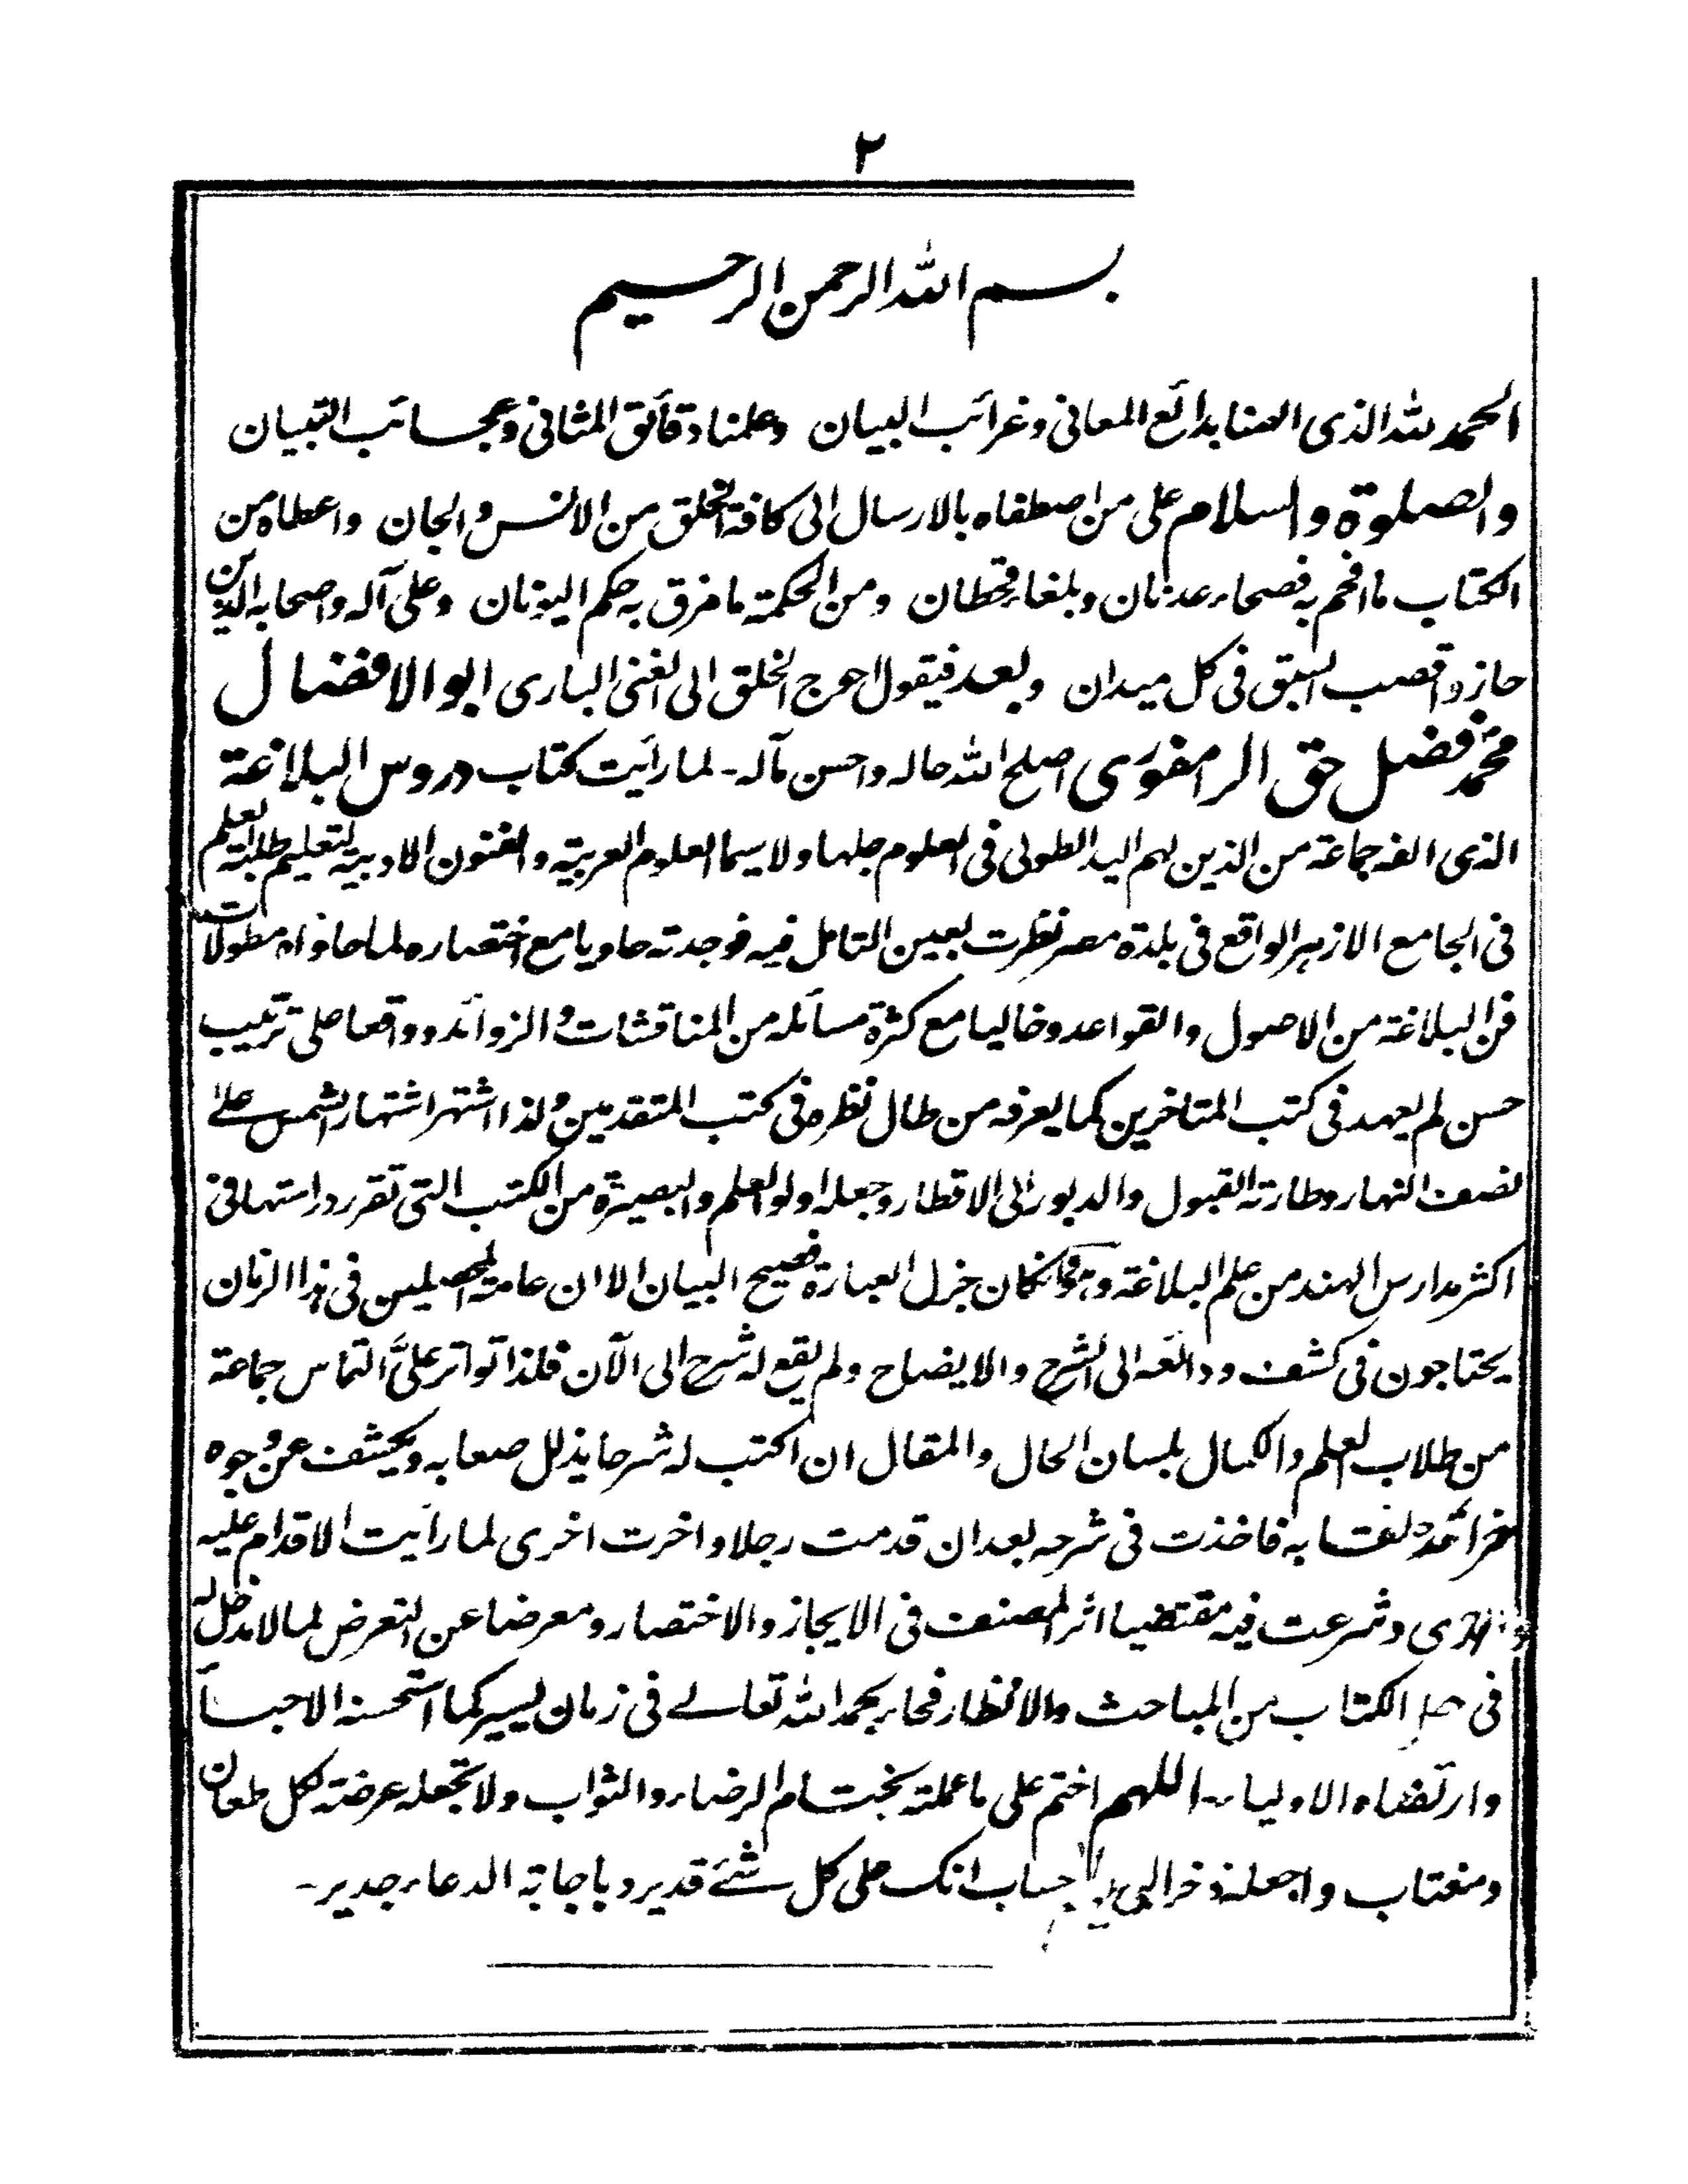 ٢
بسم الله الرحمن الرحيم
الحمد لله الذى الهمنا بدائع المعانى وغرائب البيان وعلمنا دقائق المثانى وعجائب التبيان
والصلوة والسلام على من اصطفاه بالارسال الى كافة الخلق من الانس والجان واعطاه من
الكتاب ما افحم به فصحاء عدنان وبلغاء قحطان ومن الحكمة ما مزق به حكم اليونان وعلى آله واصحابه الذين
حازوا قصب السبق فى كل ميدان وبعد فيقول احوج الخلق الى الغنى البارى ابو الافضال
محمد فضل حق الرامفورى اصلح الله حاله واحسن مآله - لما رأيت كتاب دروس البلاغة
الذى الفه جماعة من الذين لهم اليد الطولى فى العلوم جلها ولا سيما العلوم العربية والفنون الادبية لتعليم طلبة العلم
فى الجامع الازهر الواقع فى بلدة مصر نظرت بعين التامل فيه فوجدته حاويا مع اختصاره لما حاواه مطولات
فن البلاغة من الاصول والقواعد وخاليا مع كثرة مسائله من المناقشات والزوائد وواقعا على ترتيب
حسن لم يعهد فى كتب المتاخرين كما يعرفه من طال نظره فى كتب المتقدمين ولذا اشتهر اشتهار الشمس على
نصف النهار وطارته القبول والدبور الى الاقطار وجعله اولو العلم والبصيرة من الكتب التى تقرر دراستها فى
اكثر مدارس الهند من علم البلاغة وهو وان كان جزل العبارة فصيح البيان الا ان عامة المحصلين فى هذا الزمان
يحتاجون فى كشف ودائعه الى الشرح والايضاح ولم يقع له شرح الى الآن فلذا تواتر علىَّ التماس جماعة
من طلاب العلم والكمال بلسان الحال والمقال ان اكتب له شرحا يذلل صعابه ويكشف عن وجوه
خرائده نقابه فاخذت فى شرحه بعد ان قدمت رجلا واخرت اخرى لما رأيت الاقدام عليه
احرى وشرعت فيه مقتضيا اثر المصنف فى الايجاز والاختصار ومعرضا عن التعرض لما لا مدخل له
فى حل الكتاب من المباحث والانظار فجاء بحمد الله تعالے فى زمان يسير كما استحسنه الاحبا
وارتضاه الاولياء - اللهم اختم على ما عملته بختام الرضاء والثواب ولا تجعله عرضة لكل طعان
ومغتاب واجعله ذخرا لى يوم الحساب انك على كل شئ قدير وباجابة الدعاء جدير -